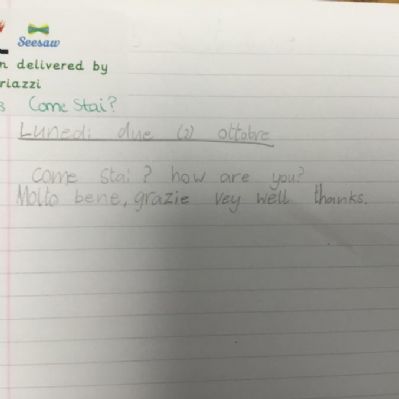 Seesaw
n delivered by
riazzi
s Come Stai?
Lunedi due (2) ottobre
come stai? how are you?
Molto bene, grazie vey well thanks.